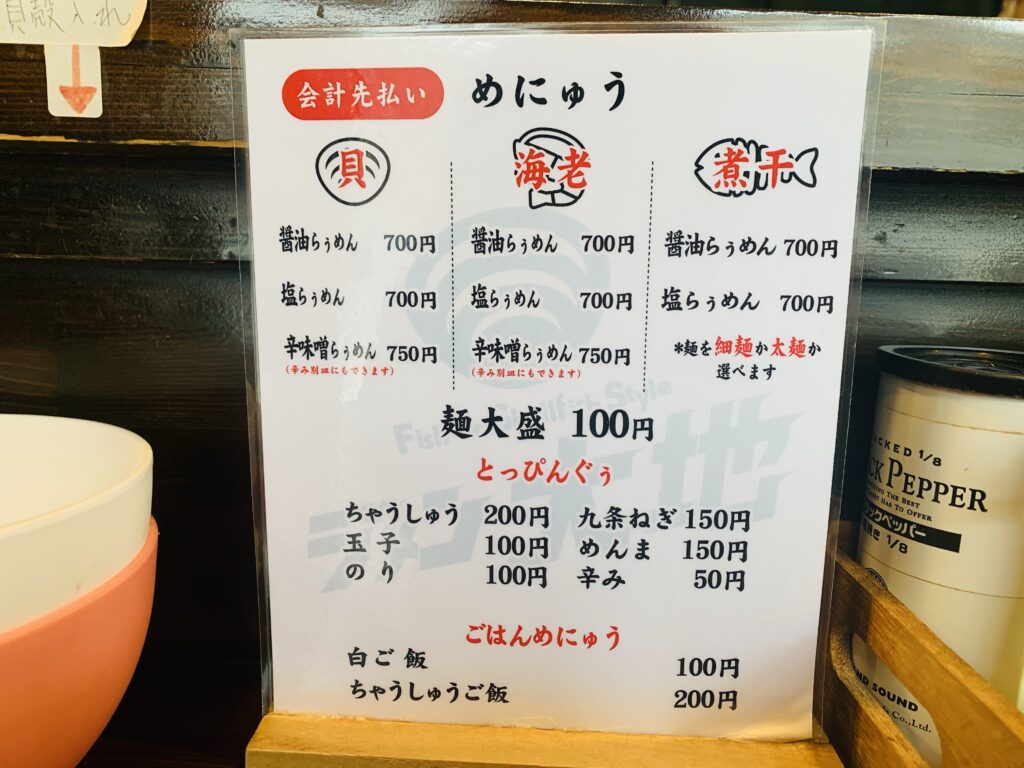 貝殻入れ
会計先払い
めにゅう
貝
醤油らぅめん 700円
塩らぅめん 700円
辛味噌らぅめん 750円
(辛み別皿にもできます)
海老
醤油らぅめん 700円
塩らぅめん 700円
辛味噌らぅめん 750円
(辛み別皿にもできます)
煮干
醤油らぅめん 700円
塩らぅめん 700円
*麺を細麺か太麺か
選べます
麺大盛 100円
とっぴんぐぅ
ちゃうしゅう 200円
玉子 100円
のり 100円
九条ねぎ 150円
めんま 150円
辛み 50円
ごはんめにゅう
白ご飯 100円
ちゃうしゅうご飯 200円
Style
大地
PEPPER
1/8
SOUND
Co.,Ltd.